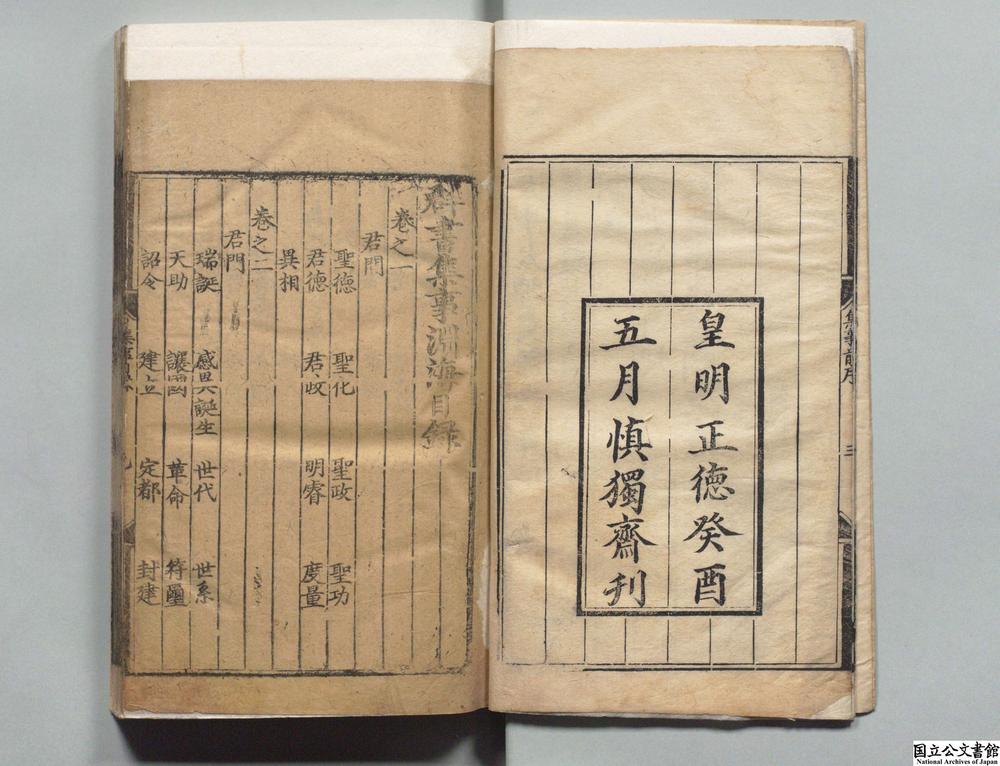 皇明正德癸酉
五月慎獨齋刋
集事前序
三
群書集事淵海目錄
卷之一
君門
聖德 聖化 聖政 聖功
君德 君政 明睿 度量
異相
卷之二
君門
瑞誕 感異誕生 世代 世系
天助 讓國 革命 符璽
詔令 建立 定都 封建
国立公文書館
National Archives of Japan